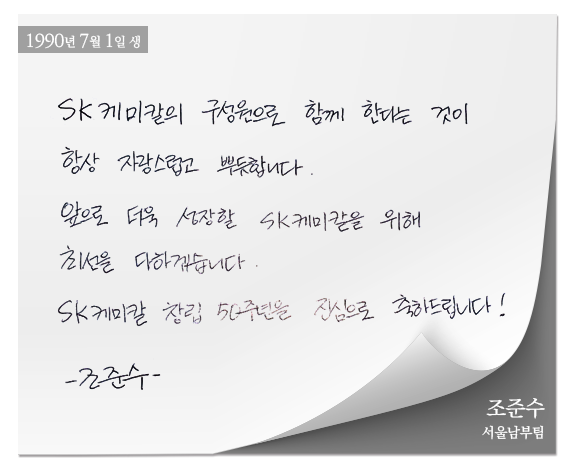 1990년 7월 1일 생
SK케미칼의 구성원으로 함께 한다는 것이
항상 자랑스럽고 뿌듯합니다.
앞으로 더욱 성장할 SK케미칼을 위해
최선을 다하겠습니다.
SK케미칼 창립 50주년을 진심으로 축하드립니다!
-조준수-
조준수
서울남부팀